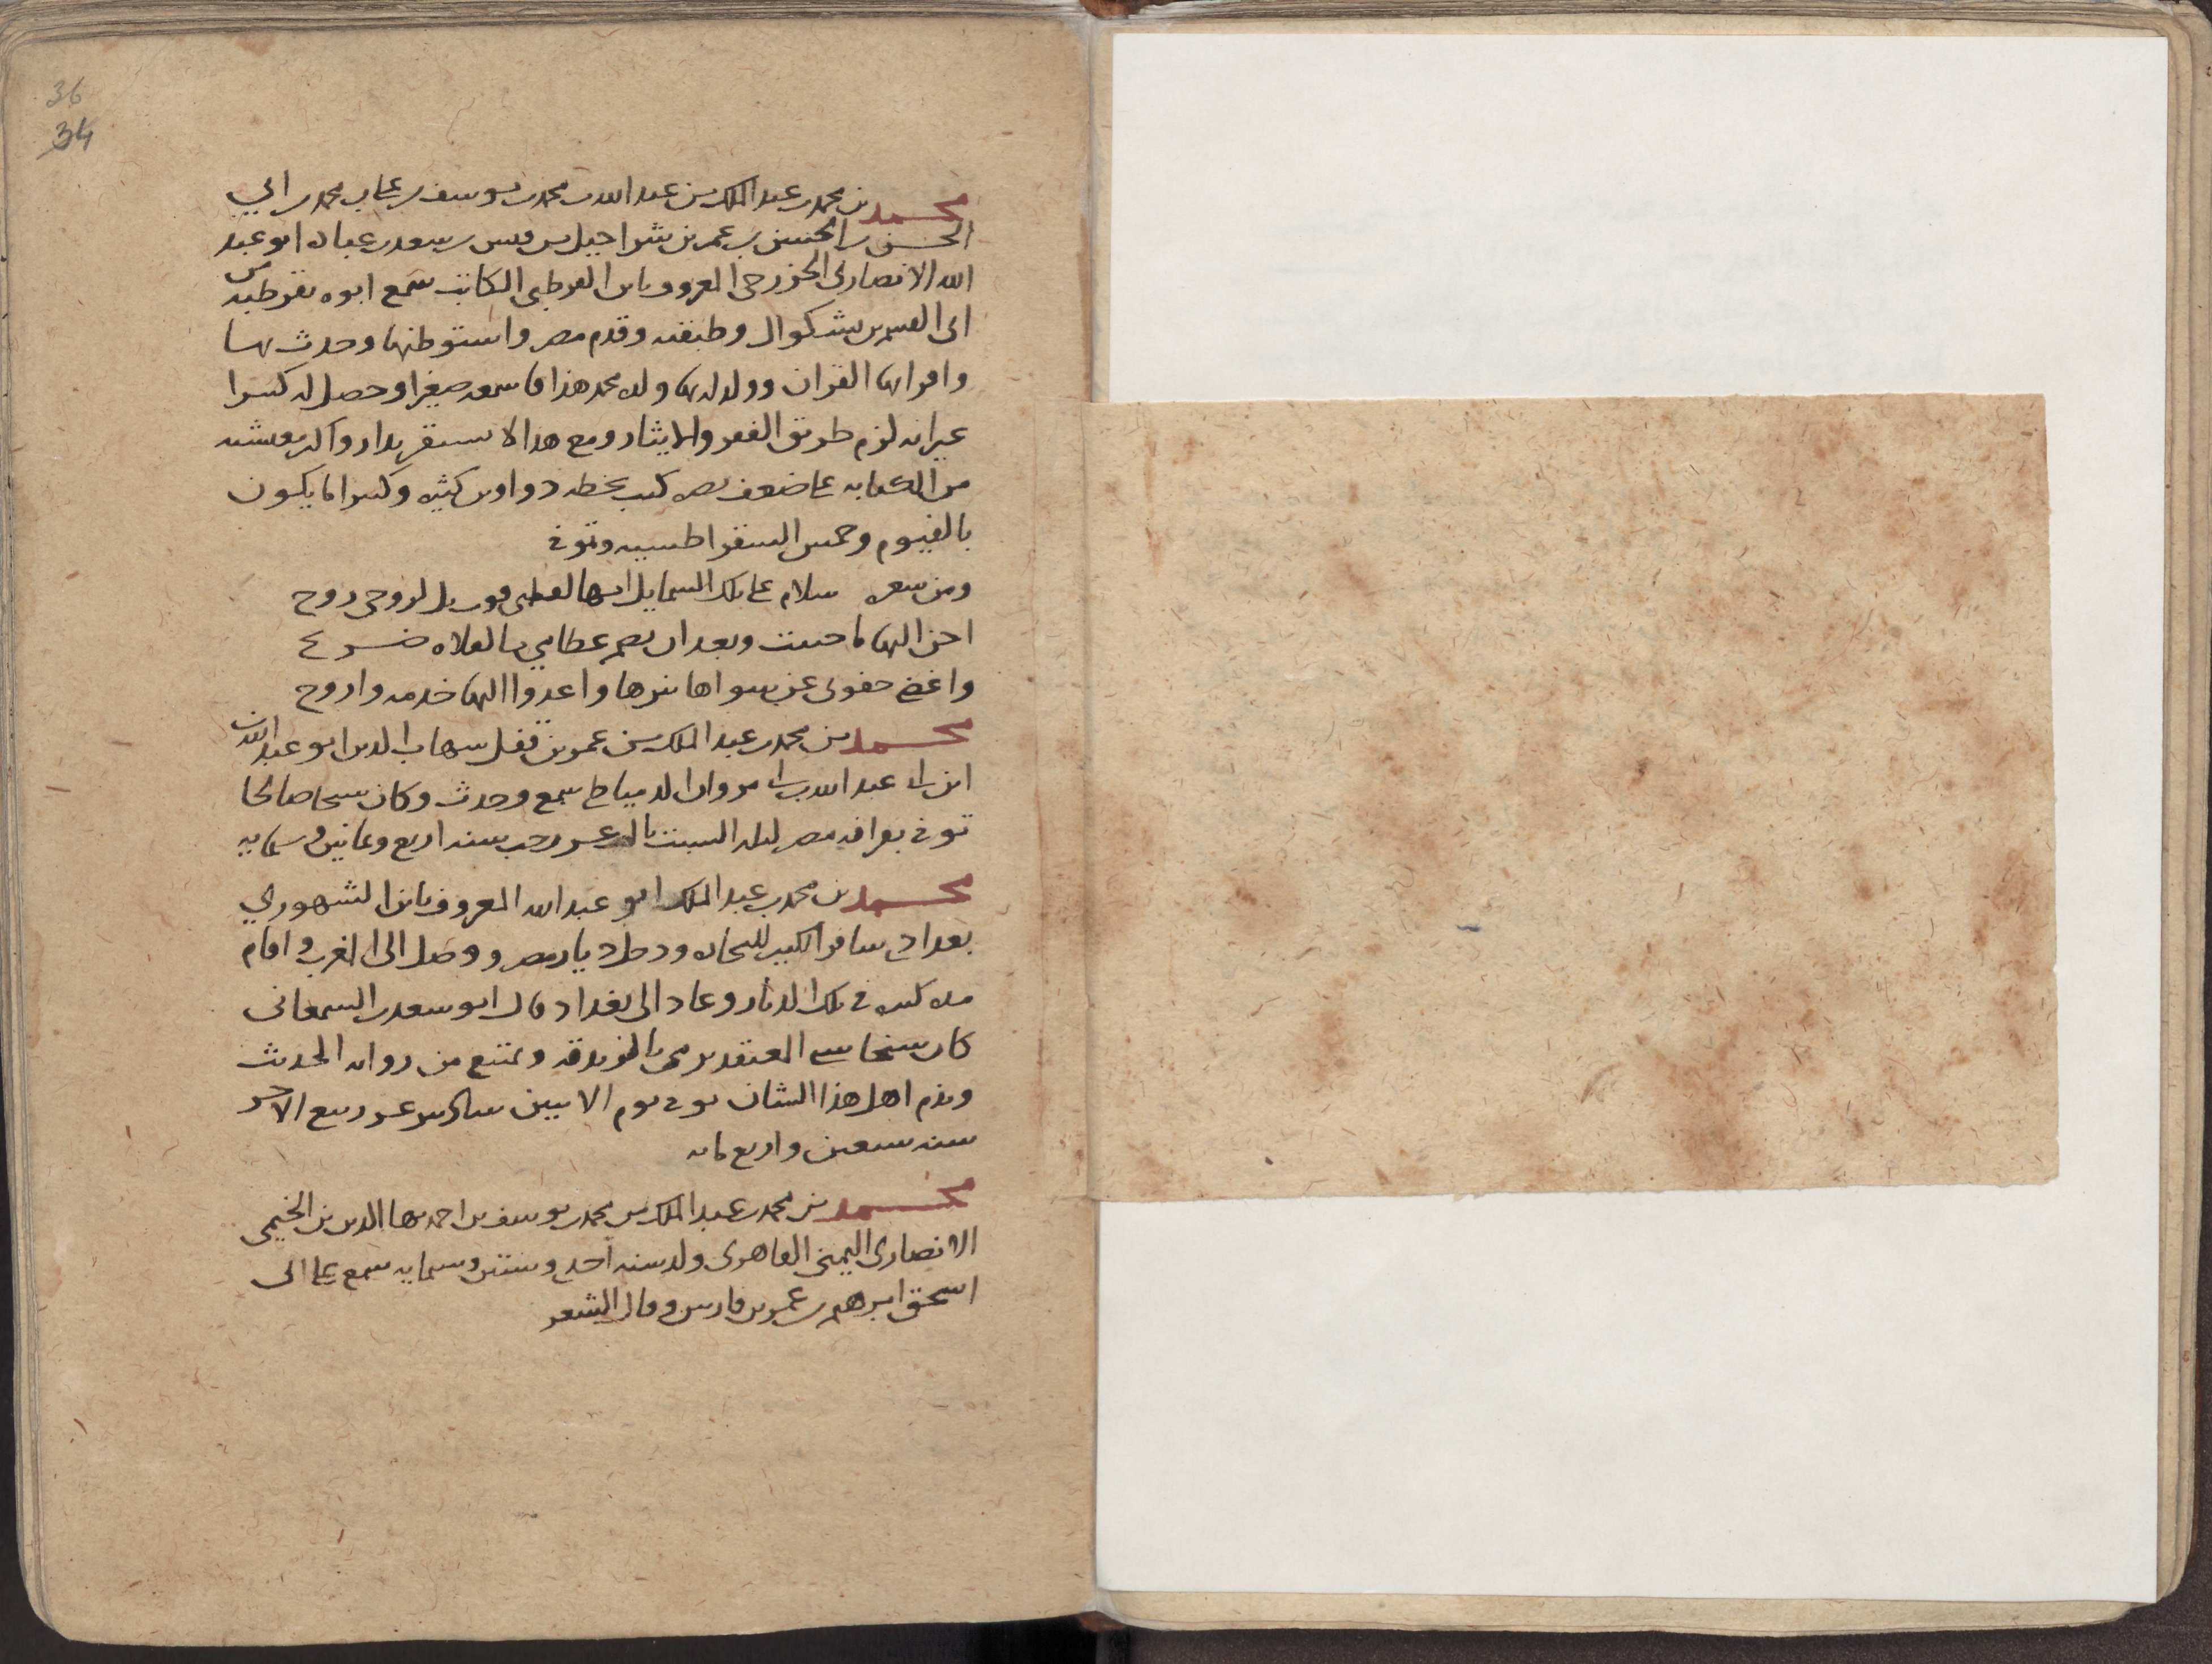 36
34
محمد بن محمد بن عبد الملك بن عبد الله بن محمد بن يوسف بن محمد بن ابي
الحسن بن الحسين بن عمر بن شراحيل بن قيس بن سعد بن عباده ابو عبد
الله الانصاري الخزرجي المعروف بابن القرطبي الكاتب سمع ابوه بقرطبه من
ابي القسم بن بشكوال وطبقته وقدم مصر واستوطنها وحدث بها
واقرا بها القران وولد له بها ولده محمد هذا فاسمعه صغيرا وحصل له كثيرا
غير انه لزم طريق الفقر والايثار ومع هذا لا يستقر بدار واكثر معيشته
من الكتابه على ضعف بصره كتب بخطه دواوين كثيره وكثيرا ما يكون
بالفيوم وخمس الشقراطسيه وتوفي
ومن شعره سلام على تلك الشمايل انها لعطفي قوت بل لروحي روح
احن اليها ما حييت وبعد ان يضم عظامي بالفلاه ضريح
واغض جفوني عن سواها تنزها واغدوا اليها خدمه واروح
محمد بن محمد بن عبد الملك بن عمر بن قفل شهاب الدين ابو عبد الله
ابن ابي عبد الله بن ابي مروان الدمياطي سمع وحدث وكان شيخا صالحا
توفي بقرافه مصر ليله السبت ثالث عشر رجب سنه اربع وثمانين وستمايه
محمد بن محمد بن عبد الملك ابو عبد الله المعروف بابن الشهوري
بغدادي سافر الكثير للتجاره ودخل ديار مصر ووصل الى المغرب واقام
مده كثيره في تلك الديار وعاد الى بغداد قال ابو سعد بن السمعاني
كان شيخا سيي المعتقد يرمى بالزندقه ويمتنع من روايه الحديث
ويذم اهل هذا الشان توفي يوم الاثنين سادس عشر ربيع الاخر
سنه سبعين واربع مايه
محمد بن محمد بن عبد الملك بن محمد بن يوسف بن احمد بها الدين بن الخيمي
الانصاري اليمني القاهري ولد سنه احدى وستين وستمايه سمع على ابي
اسحق ابرهيم بن عمر بن فارس وقال الشعر